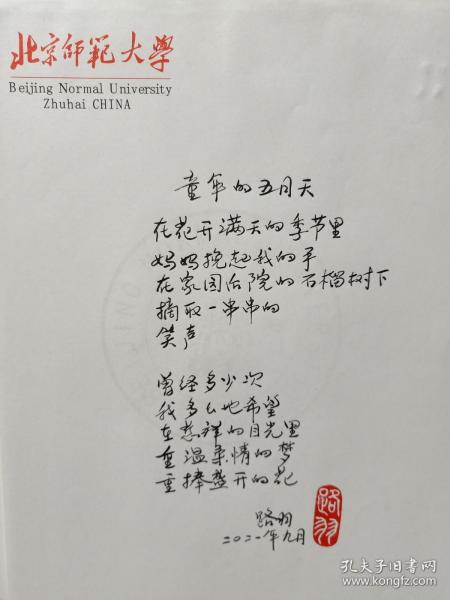 北京师范大学
Beijing Normal University
Zhuhai CHINA
童年的五月天
在花开满天的季节里
妈妈挽起我的手
在家园后院的石榴树下
摘取一串串的
笑声
曾经多少次
我多么地希望
在慈祥的目光里
重温柔情的梦
重捧盛开的花
路羽
二〇二一年九月
路羽
孔夫子旧书网